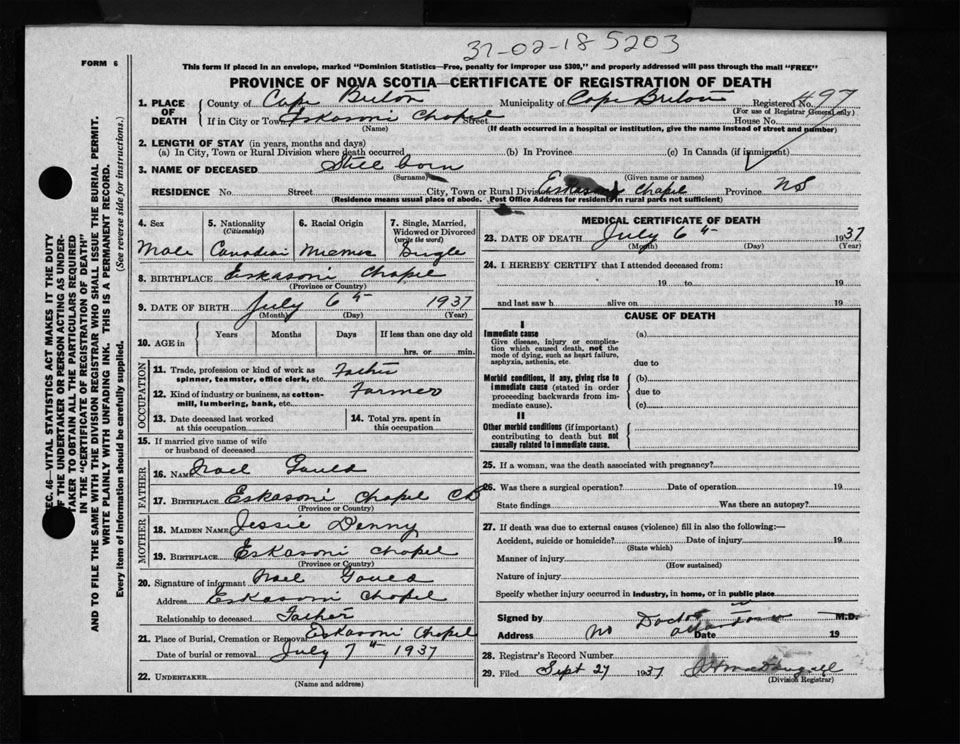 37-02-18 5203
FORM 6
This form if placed in an envelope, marked "Dominion Statistics—Free, penalty for improper use $300," and properly addressed will pass through the mail "FREE"
PROVINCE OF NOVA SCOTIA—CERTIFICATE OF REGISTRATION OF DEATH
1. PLACE OF DEATH
County of Cape Breton Municipality of Cape Breton Registered No. 497
(For use of Registrar General only)
If in City or Town Eskasoni Chapel Street House No.
(Name) (If death occurred in a hospital or institution, give the name instead of street and number)
2. LENGTH OF STAY (in years, months and days)
(a) In City, Town or Rural Division where death occurred (b) In Province (c) In Canada (if immigrant)
3. NAME OF DECEASED Still born
(Surname) (Given name or names)
RESIDENCE No. Street City, Town or Rural Division Eskasoni Chapel Province NS
(Residence means usual place of abode. Post Office Address for residents in rural parts not sufficient)
4. Sex Male
5. Nationality (Citizenship) Canadian
6. Racial Origin Micmac
7. Single, Married, Widowed or Divorced (write the word) Single
8. BIRTHPLACE Eskasoni Chapel
(Province or Country)
9. DATE OF BIRTH July 6th 1937
(Month) (Day) (Year)
10. AGE in Years Months Days If less than one day old
hrs. or min.
OCCUPATION
11. Trade, profession or kind of work as spinner, teamster, office clerk, etc. Father
12. Kind of industry or business, as cotton-mill, lumbering, bank, etc. Farmer
13. Date deceased last worked at this occupation
14. Total yrs. spent in this occupation
15. If married give name of wife or husband of deceased
FATHER
16. NAME Noel Gould
17. BIRTHPLACE Eskasoni Chapel CB
(Province or Country)
MOTHER
18. MAIDEN NAME Jessie Denny
19. BIRTHPLACE Eskasoni Chapel
(Province or Country)
20. Signature of informant Noel Gould
Address Eskasoni Chapel
Relationship to deceased Father
21. Place of Burial, Cremation or Removal Eskasoni Chapel
Date of burial or removal July 7th 1937
22. UNDERTAKER
(Name and address)
MEDICAL CERTIFICATE OF DEATH
23. DATE OF DEATH July 6th 1937
(Month) (Day) (Year)
24. I HEREBY CERTIFY that I attended deceased from:
19 to 19
and last saw h alive on 19
CAUSE OF DEATH
I
Immediate cause
Give disease, injury or complication which caused death, not the mode of dying, such as heart failure, asphyxia, asthenia, etc.
(a)
due to
Morbid conditions, if any, giving rise to immediate cause (stated in order proceeding backwards from immediate cause).
(b)
due to
(c)
II
Other morbid conditions (if important) contributing to death but not causally related to immediate cause.
25. If a woman, was the death associated with pregnancy?
26. Was there a surgical operation? Date of operation 19
State findings Was there an autopsy?
27. If death was due to external causes (violence) fill in also the following:—
Accident, suicide or homicide? Date of injury 19
(State which)
Manner of injury
(How sustained)
Nature of injury
Specify whether injury occurred in industry, in home, or in public place
Signed by M.D.
No Doctor in attendance
Address Date 19
28. Registrar's Record Number
29. Filed Sept 27 1937
(Division Registrar)
SEC. 46—VITAL STATISTICS ACT MAKES IT THE DUTY
OF THE UNDERTAKER OR PERSON ACTING AS UNDER-
TAKER TO OBTAIN ALL THE PARTICULARS REQUIRED
IN THE "CERTIFICATE OF REGISTRATION OF DEATH"
AND TO FILE THE SAME WITH THE DIVISION REGISTRAR WHO SHALL ISSUE THE BURIAL PERMIT.
WRITE PLAINLY WITH UNFADING INK. THIS IS A PERMANENT RECORD.
Every item of information should be carefully supplied. (See reverse side for instructions.)